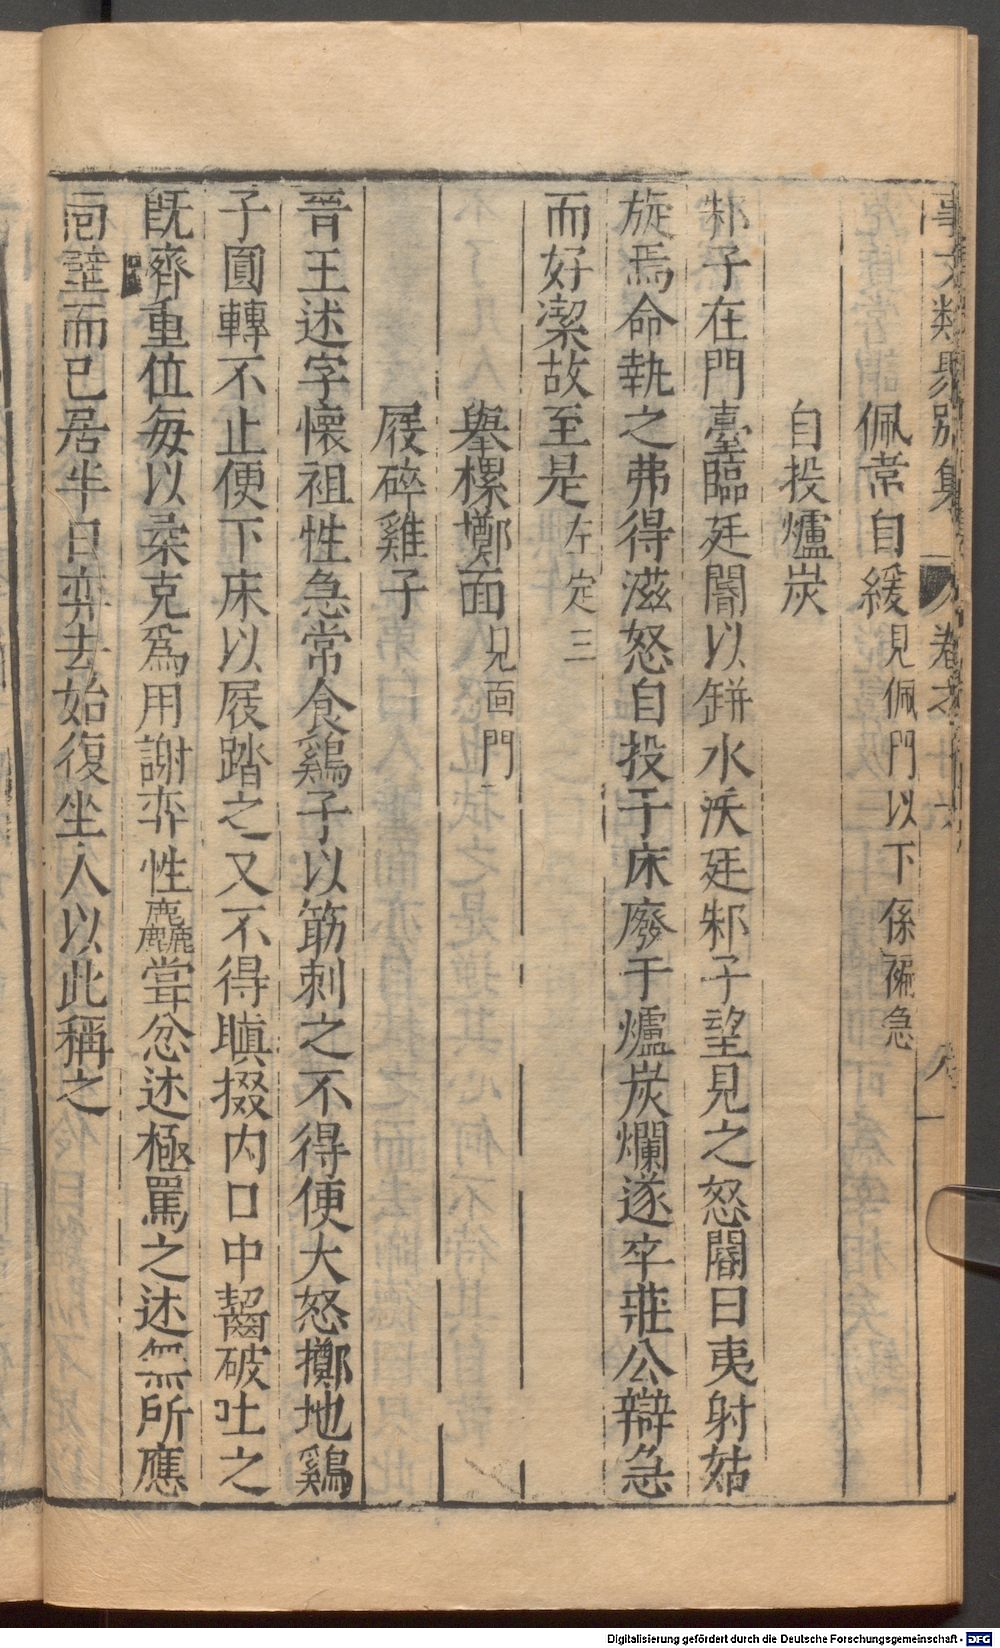 事文類聚別集 卷之十六
佩常自緩見佩門以下係褊急
自投爐炭
邾子在門臺臨廷閽以缾水沃廷邾子望見之怒閽曰夷射姑
旋焉命執之弗得滋怒自投于床廢于爐炭爛遂卒莊公辯急
而好潔故至是左定三
舉樏擲面兄面門
屐碎雞子
晉王述字懷祖性急常食鷄子以筯刺之不得便大怒擲地鷄
子圓轉不止便下床以屐踏之又不得瞋掇内口中齧破吐之
既齊重位每以柔克爲用謝弈性麤嘗忿述極罵之述無所應
面壁而已居半日弈去始復坐人以此稱之
Digitalisierung gefördert durch die Deutsche Forschungsgemeinschaft - DFG